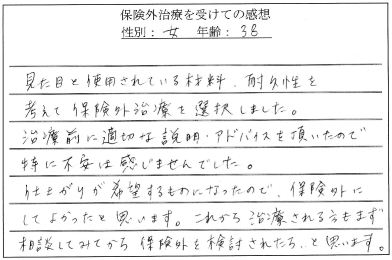 保険外治療を受けての感想
性別：女　年齢：38
見た目と使用されている材料、耐久性を
考えて保険外治療を選択しました。
治療前に適切な説明・アドバイスを頂いたので
特に不安は感じませんでした。
仕上がりが希望するものになったので、保険外に
してよかったと思います。これから治療される方もまず
相談してみてから保険外を検討されたら、と思います。